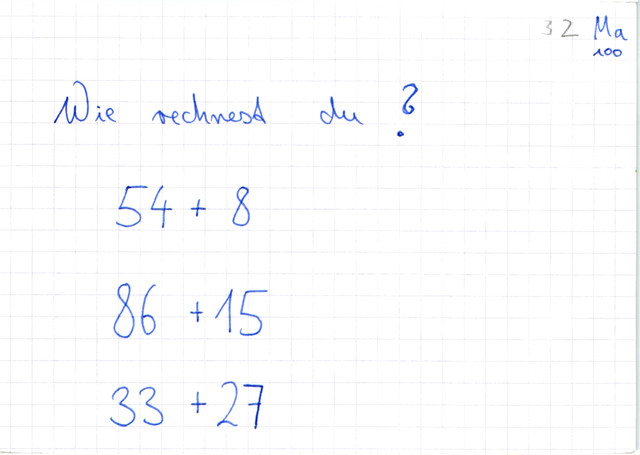 32 Ma
100
Wie rechnest du?
54 + 8
86 + 15
33 + 27